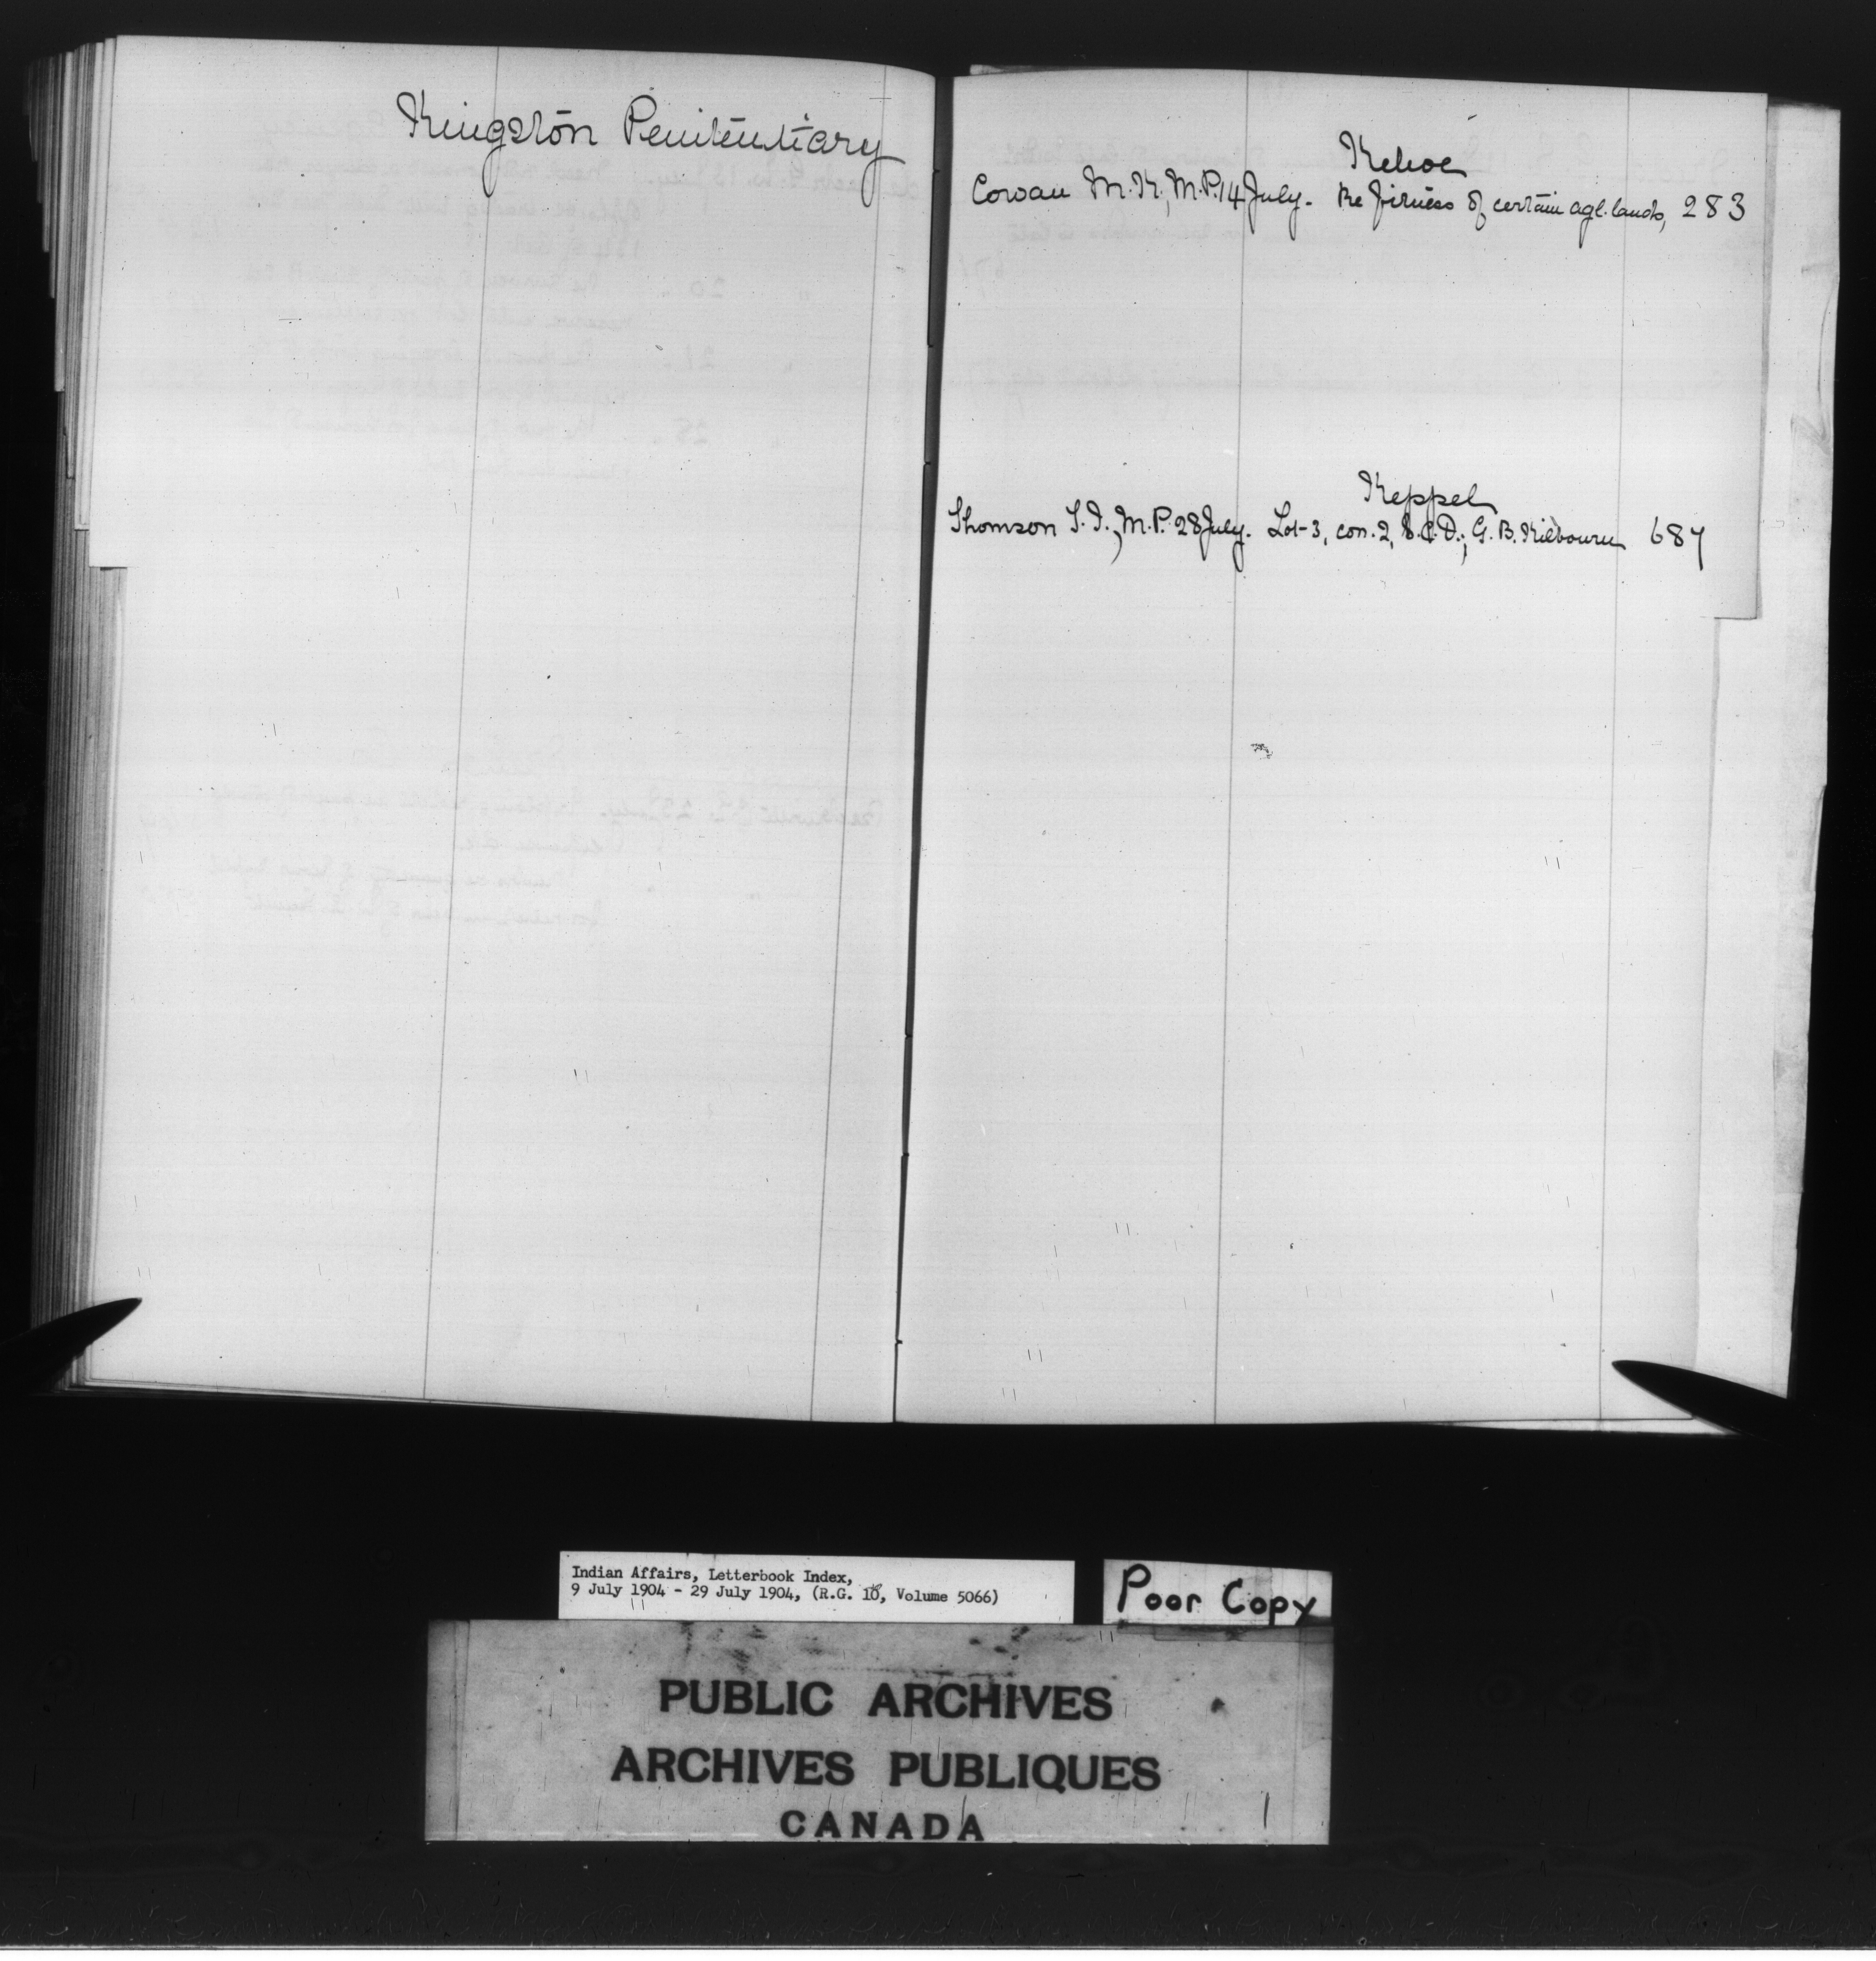 Kingston Penitentiary
Kehoe
Cowan M.K., M.P. 14 July. Re fitness of certain agl. lands, 283
Keppel
Thomson T. I., M.P. 28 July. Lot 3, con. 2, G. B. Kilbourn 687
Indian Affairs, Letterbook Index,
9 July 1904 - 29 July 1904, (R.G. 10, Volume 5066)
Poor Copy
PUBLIC ARCHIVES
ARCHIVES PUBLIQUES
CANADA